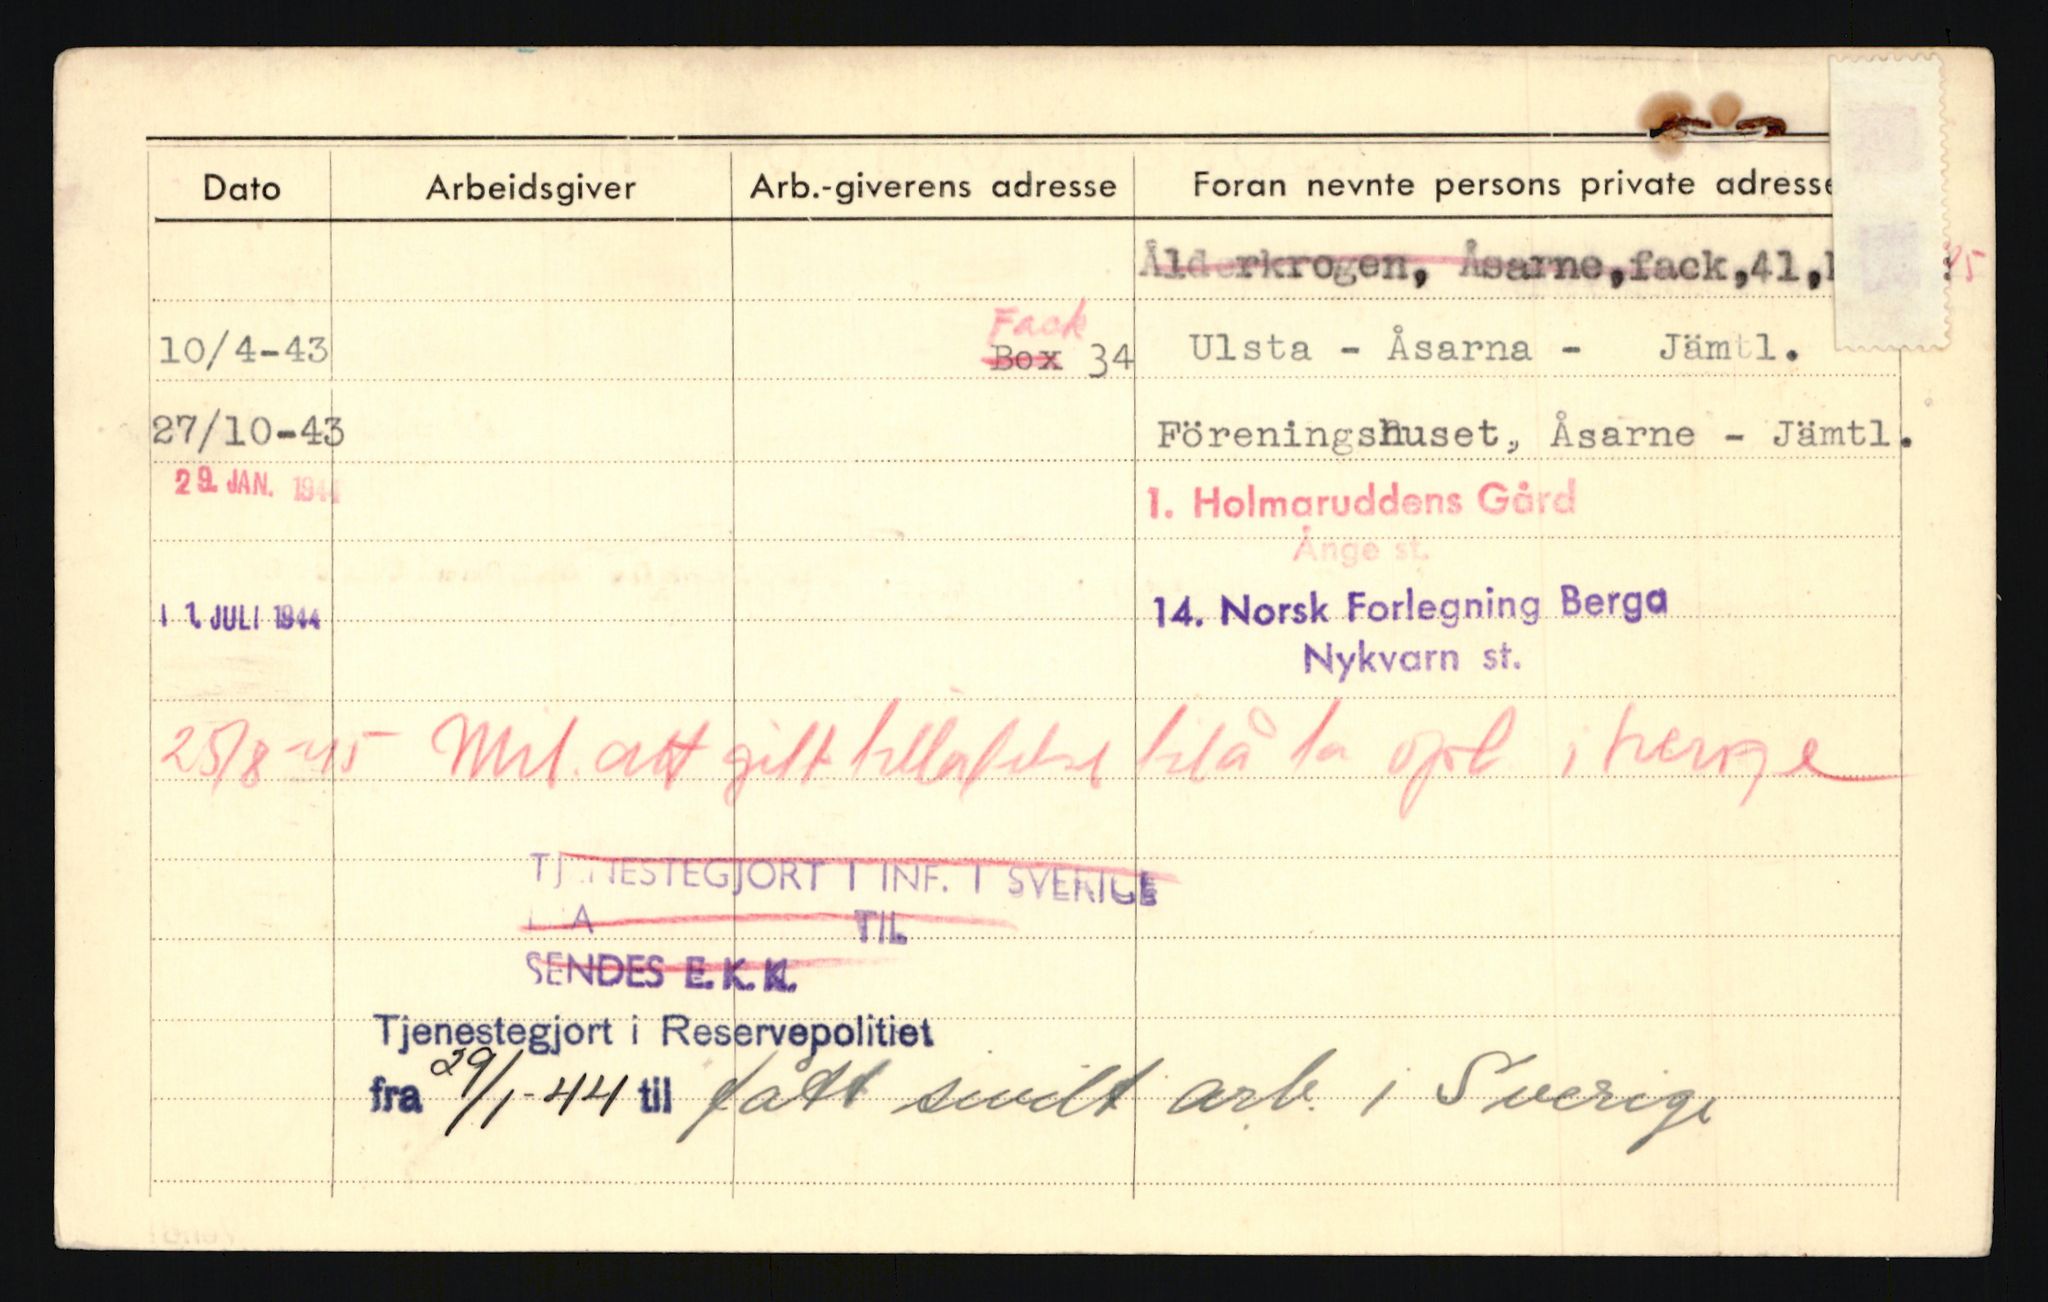 Dato Arbeidsgiver Arb.-giverens adresse Foran nevnte persons private adresse
Ålderkrogen, Åsarne, fack, 41,
Fack
10/4-43 Box 34 Ulsta - Åsarna - Jämtl.
27/10-43 Föreningshuset, Åsarne - Jämtl.
29. JAN. 1944 1. Holmaruddens Gård
Ånge st.
11. JULI 1944 14. Norsk Forlegning Berga
Nykvarn st.
25/8-45 Mil. att gitt tillatelse til å ta opl i Sverige
TJENESTEGJORT I INF. I SVERIGE
FRA TIL
SENDES E.K.K.
Tjenestegjort i Reservepolitiet
fra 29/1-44 til fått sivilt arb. i Sverige